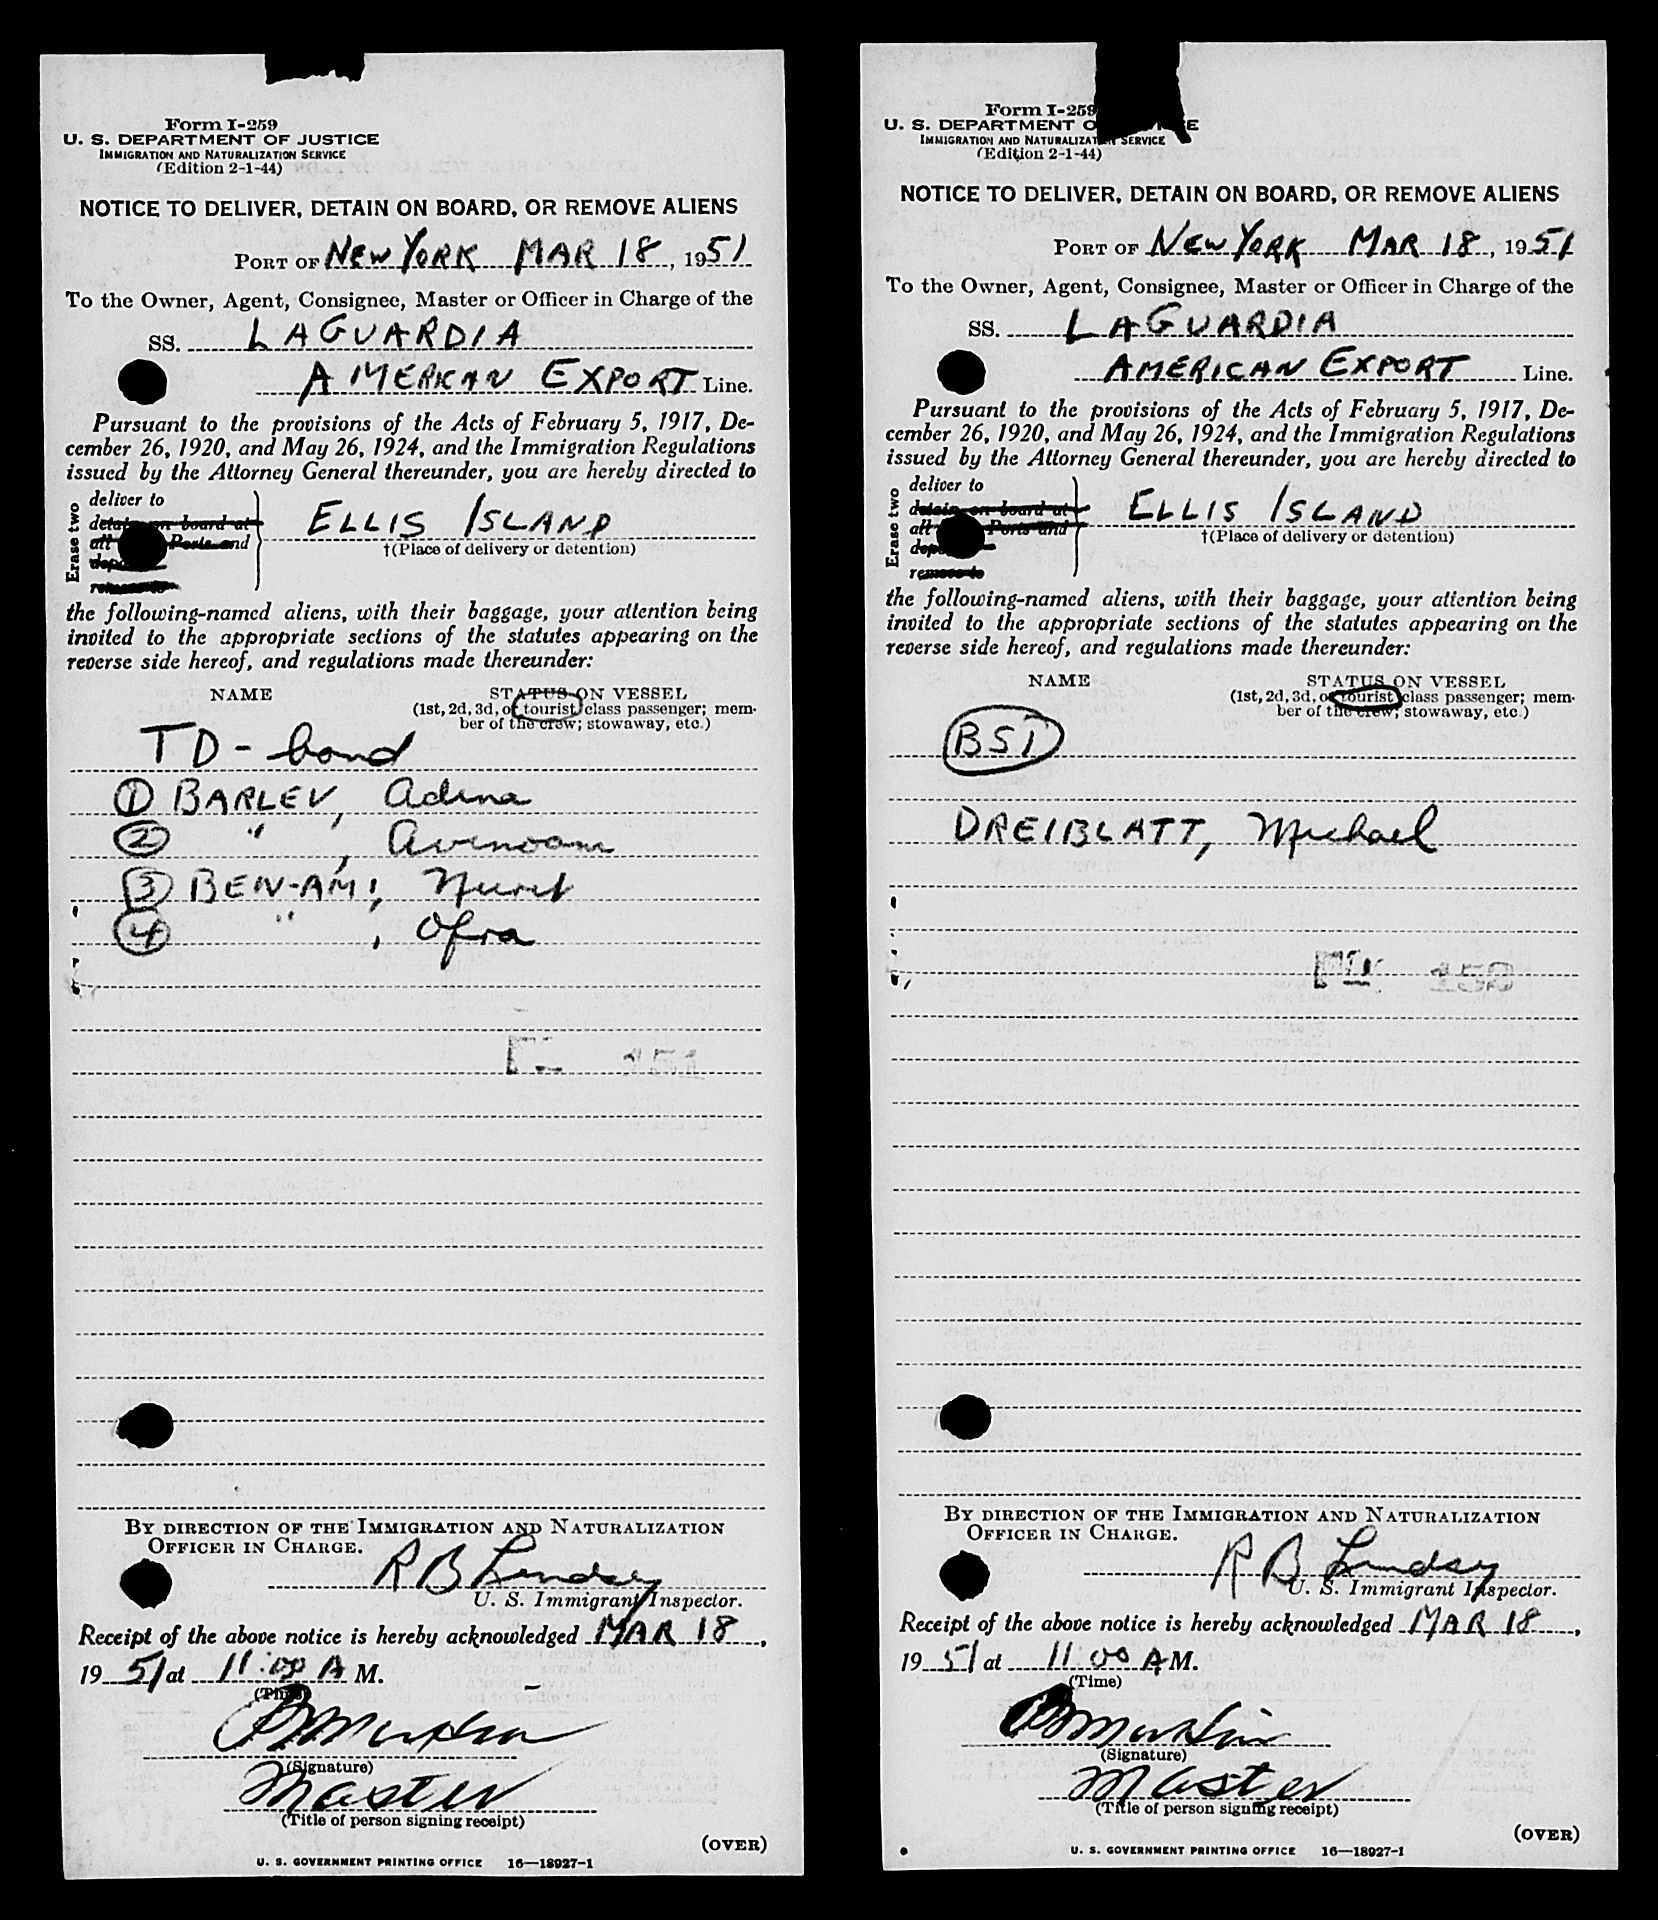 Form I-259
U. S. DEPARTMENT OF JUSTICE
IMMIGRATION AND NATURALIZATION SERVICE
(Edition 2-1-44)
NOTICE TO DELIVER, DETAIN ON BOARD, OR REMOVE ALIENS
PORT OF NEW YORK MAR 18, 1951
To the Owner, Agent, Consignee, Master or Officer in Charge of the
SS. LAGUARDIA
AMERICAN EXPORT Line.
Pursuant to the provisions of the Acts of February 5, 1917, De-
cember 26, 1920, and May 26, 1924, and the Immigration Regulations
issued by the Attorney General thereunder, you are hereby directed to
Erase two
deliver to
detain on board at
all Ports and
remove to
ELLIS ISLAND
†(Place of delivery or detention)
the following-named aliens, with their baggage, your attention being
invited to the appropriate sections of the statutes appearing on the
reverse side hereof, and regulations made thereunder:
NAME STATUS ON VESSEL
(1st, 2d, 3d, or tourist class passenger; mem-
ber of the crew; stowaway, etc.)
TD - bond
1 BARLEV, Adina
2 " , Avinoam
3 BEN-AMI, Nurit
4 " , Ofra
151
BY DIRECTION OF THE IMMIGRATION AND NATURALIZATION
OFFICER IN CHARGE.
R B Lindsey
U. S. Immigrant Inspector.
Receipt of the above notice is hereby acknowledged MAR 18,
1951 at 11:00 A M.
(Time)
(Signature)
Master
(Title of person signing receipt)
(OVER)
U. S. GOVERNMENT PRINTING OFFICE 16—18927-1
Form I-259
U. S. DEPARTMENT O E
IMMIGRATION AND NATURALIZATION SERVICE
(Edition 2-1-44)
NOTICE TO DELIVER, DETAIN ON BOARD, OR REMOVE ALIENS
PORT OF NEW YORK MAR 18, 1951
To the Owner, Agent, Consignee, Master or Officer in Charge of the
SS. LAGUARDIA
AMERICAN EXPORT Line.
Pursuant to the provisions of the Acts of February 5, 1917, De-
cember 26, 1920, and May 26, 1924, and the Immigration Regulations
issued by the Attorney General thereunder, you are hereby directed to
Erase two
deliver to
detain on board at
all Ports and
remove to
ELLIS ISLAND
†(Place of delivery or detention)
the following-named aliens, with their baggage, your attention being
invited to the appropriate sections of the statutes appearing on the
reverse side hereof, and regulations made thereunder:
NAME STATUS ON VESSEL
(1st, 2d, 3d, or tourist class passenger; mem-
ber of the crew; stowaway, etc.)
BSI
DREIBLATT, Michael
150
BY DIRECTION OF THE IMMIGRATION AND NATURALIZATION
OFFICER IN CHARGE.
R B Lindsey
U. S. Immigrant Inspector.
Receipt of the above notice is hereby acknowledged MAR 18,
1951 at 11 00 A M.
(Time)
(Signature)
Master
(Title of person signing receipt)
(OVER)
U. S. GOVERNMENT PRINTING OFFICE 16—18927-1